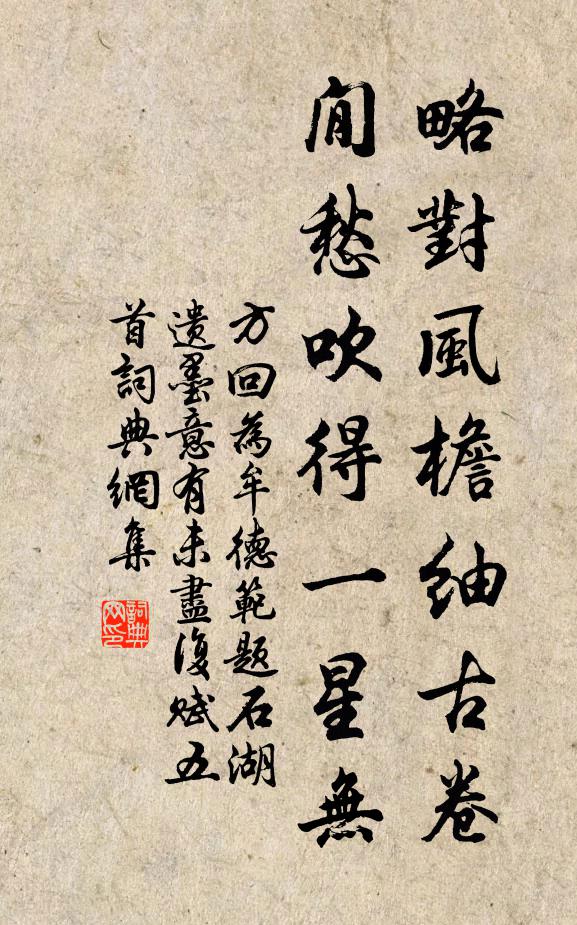 略對風檐紬古卷
閒愁吹得一星無
方回為牟德範題石湖
遺墨意有未盡復賦五
首詞典網集
詞典
网印